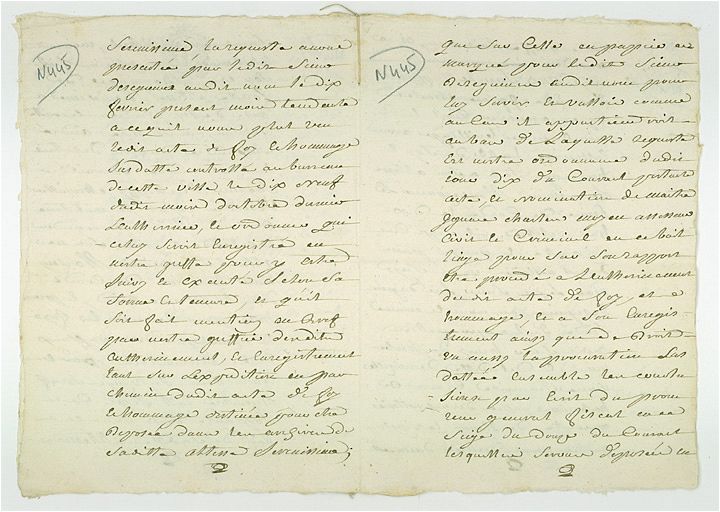 N445
Serenissime, la requeste a nous
presentée par ledit Sieur
audit nom le dix
fevrier present mois tendante
a ce quil nous plut
ledit acte de foy et hommage
Susdatté controllé au bureau
de cette ville le dix neuf
dudit mois d'octobre dernier
Entheriné, et ordonner qui
celuy seroit Enregistré en
nostre greffe pour y estre
Suivy et executé selon sa
forme et teneur, et quil
soit fait mention au bref
par nostre greffier dudit
entherinement, et enregistrement
tant sur L'expedition en par
chemin dudit acte de foy
et hommage destinée pour estre
deposée dans les archives de
Sa ditte altesse Serenissime,
N445
que sur Celle en pappier en
pour ledit Sieur
audit nom pour
luy servir et valloir comme
au Cas il appartiendroit
au bas de Laquelle requeste
Est nostre ordonnance dudit
jour dix du Courant portant
acte, et nomination de maitre
Charles moyen assesseur
civil et Criminel en ce
Siege pour sur Son rapport
estre procedé a L'entherinement
dudit acte de foy, et
hommage et a Son Enregis
trement ainsy que de Droit
Vu aussy la procuration Sus
dattée Ensemble les conclu
sions par Ecrit du procu
reur general fiscal en ce
Siege du Douze du Courant
lesquelles seront deposées en